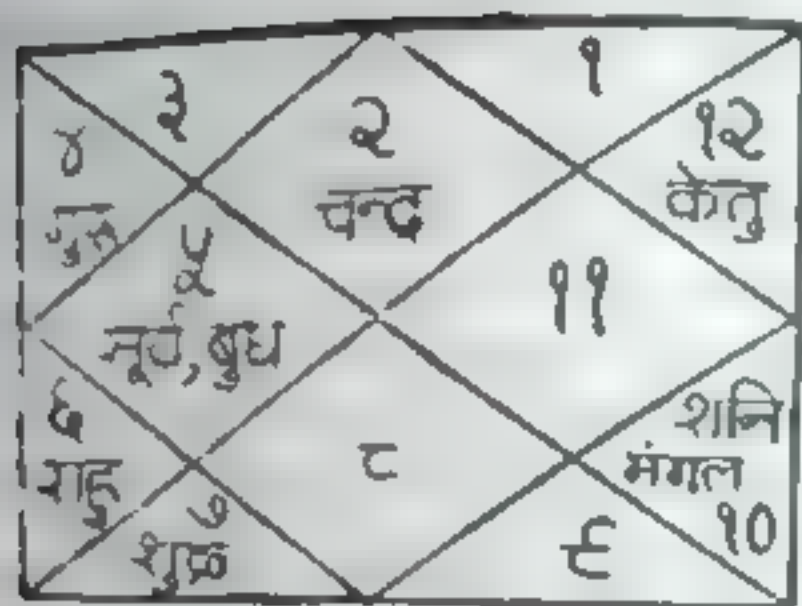 ३
२
चन्द्र
१
१२
केतु
४
५
सूर्य, बुध
११
६
राहु
७
शुक्र
८
शनि
मंगल
१०
९